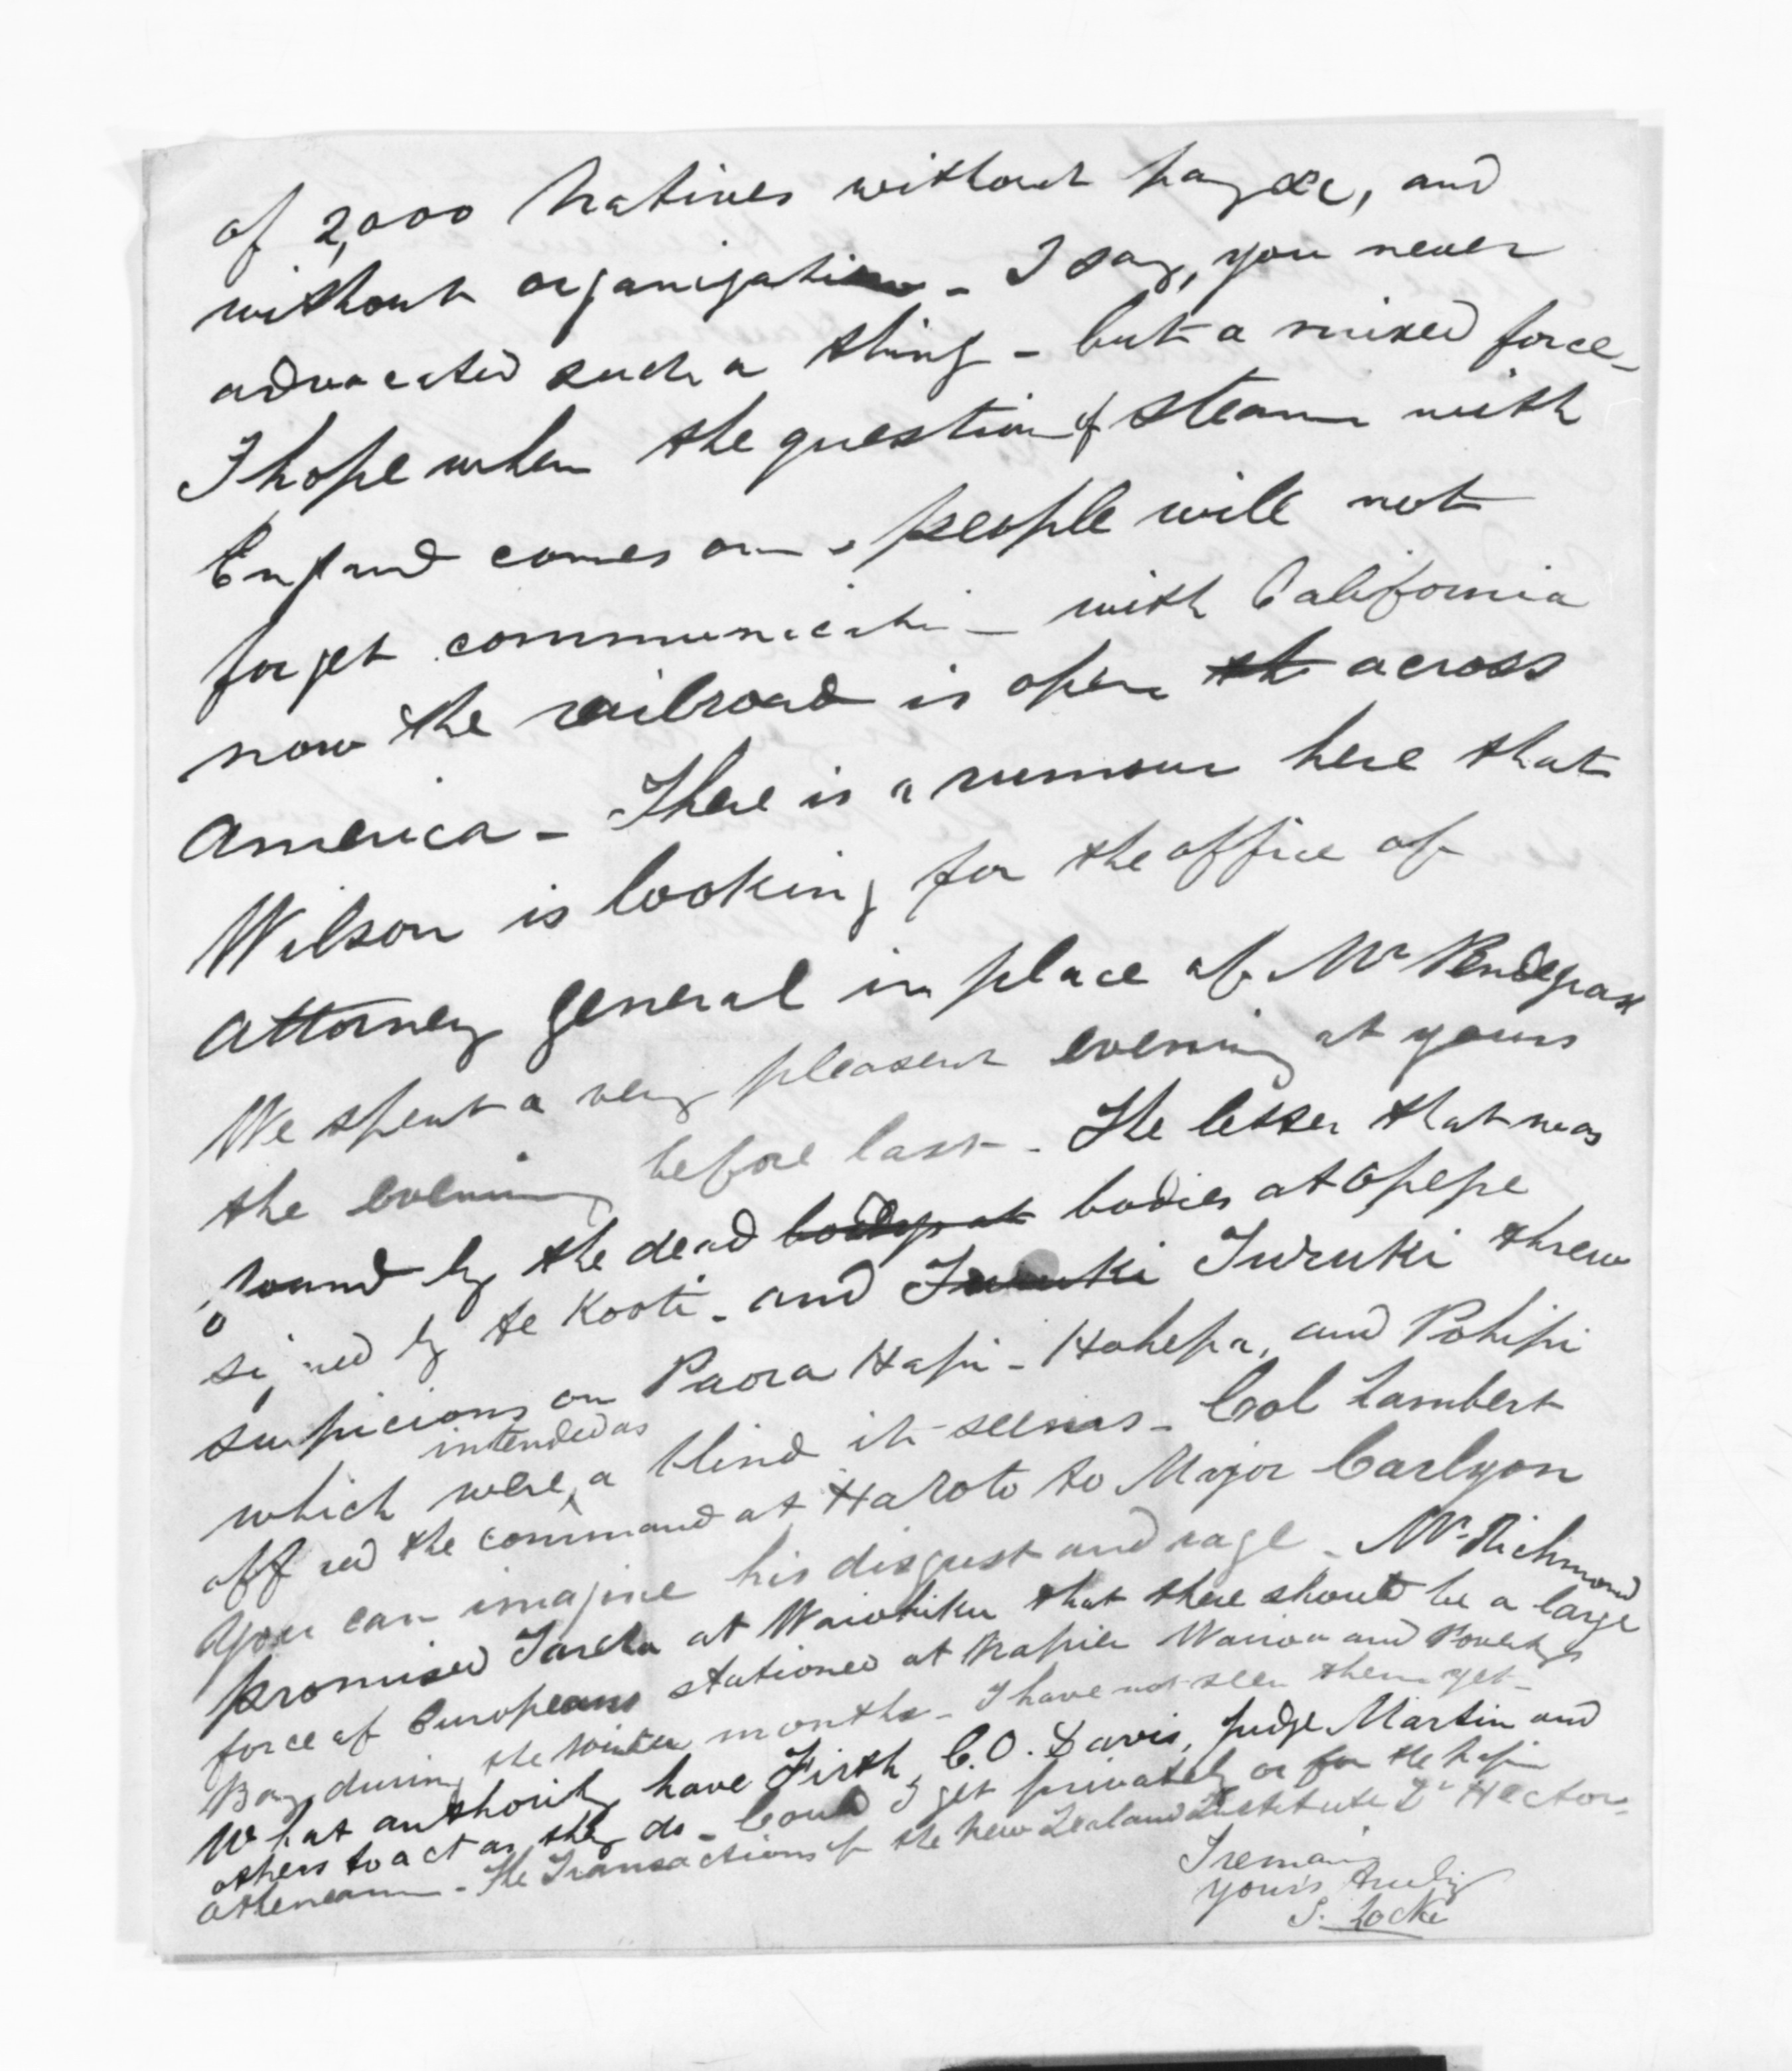 of 2,000 Natives without pay &c, and
without organization - I say, you never
advocated such a thing - but a mixed force -
I hope when the question of steam with
England comes on - people will not
forget communication - with California
now the railroad is open th across
America - There is a rumour here that
Wilson is looking for the office of
Attorney general in place of Mr Pendegrast
We spent a very pleasent evening at yours
the evening before last - The letter that was
found by the dead bodys at bodies at Opepe
signed by te Kooti - and Turuki Turuki threw
suspicions on Paora Hapi - Hohepa, and Pohipi
intended as
which were a blind it seems - Col Lambert
offered the command at Haroto to Major Carlyon
you can imagine his disgust and rage - Mr Richmond
promised Tareha at Waiohiku that there should be a large
force of Europeans stationed at Napier Wairoa and Poverty
Bay during the winter months - I have not seen them yet -
What authority have Firth, C.O. Davis, Judge Martin and
others to act as they do - Could I get privately or for the Napier
Atheneam - The Transactions of the New Zealand Institute Dr Hector -
I remain
yours truly
S. Locke